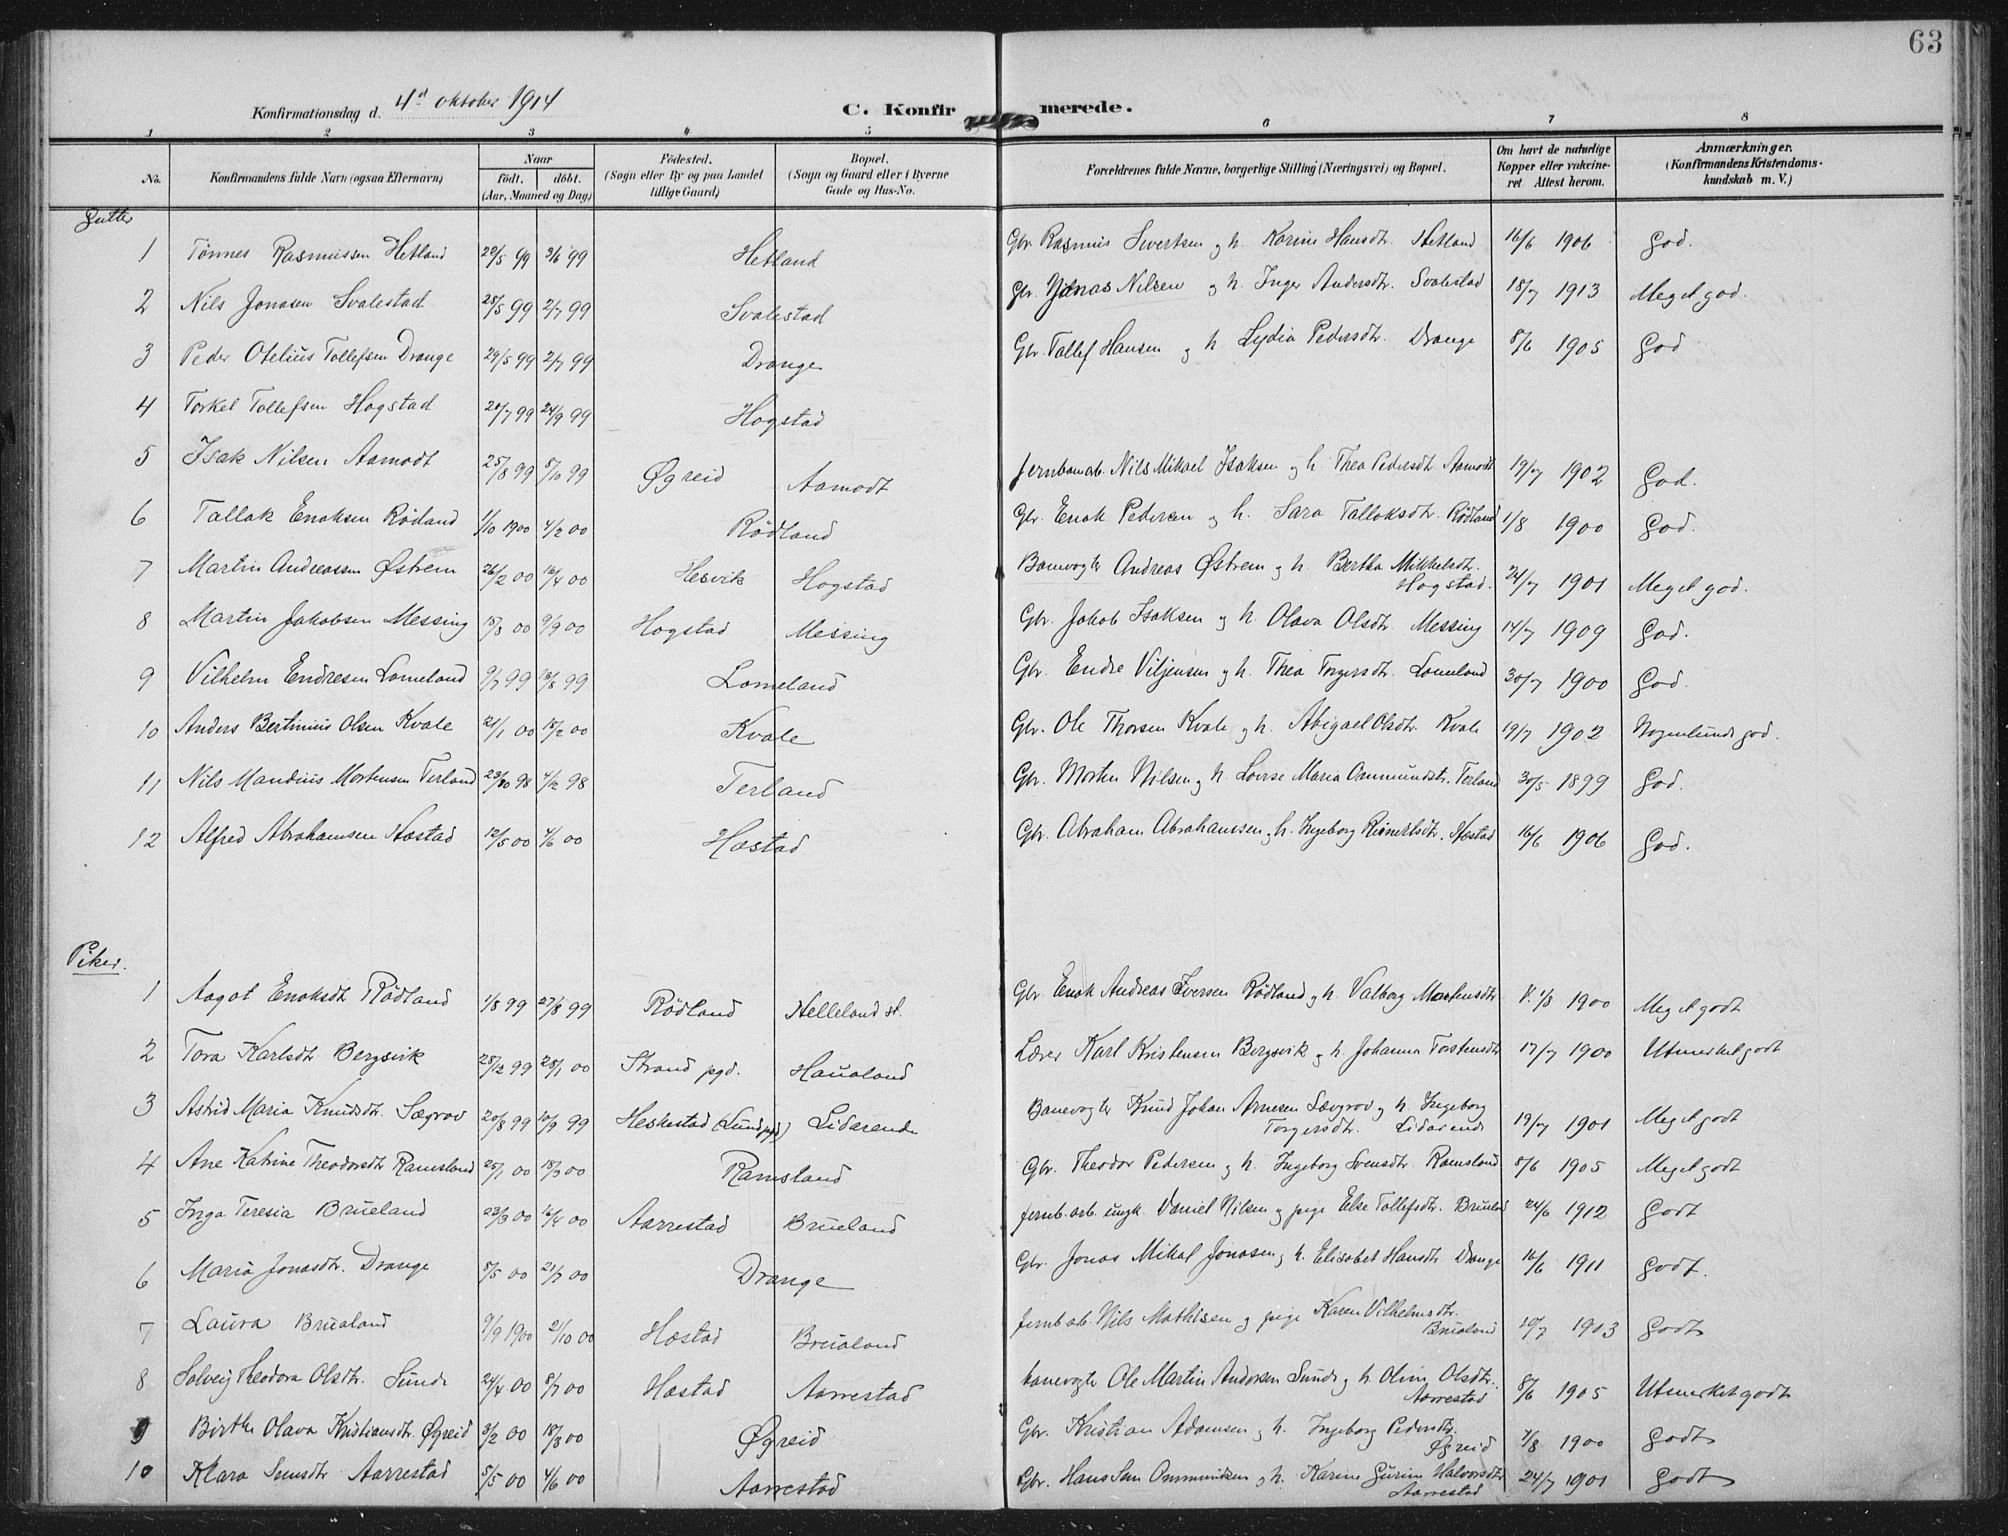 63
Konfirmationsdag d. 4de oktober 1914
C. Konfirmerede.
1 2 3 4 5 6 7 8
No.
Konfirmandens fulde Navn (ogsaa Efternavn)
Naar
födt. döbt.
(Aar, Maaned og Dag)
Födested.
(Sogn eller By og paa Landet
tillige Gaard)
Bopæl.
(Sogn og Gaard eller i Byerne
Gade og Hus-No.
Forældrenes fulde Navne, borgerlige Stilling (Næringsvei) og Bopæl.
Om havt de naturlige
Kopper eller vakcine-
ret. Attest herom.
Anmærkninger.
(Konfirmandens Kristendoms-
kundskab m. V.)
Gutter
1 Tønnes Rasmussen Hetland 22/5 99 3/6 99 Hetland Gbr. Rasmus Sivertsen og h. Karine Hansdtr. Hetland 16/6 1906 God.
2 Nils Jonasen Svalestad 28/5 99 2/7 99 Svalestad Gbr. Jonas Nilsen og h. Inger Andersdtr. Svalestad 18/7 1913 Meget god.
3 Peder Otelius Tollefsen Drange 29/5 99 2/7 99 Drange Gbr. Tallef Hansen og h. Lydia Pedersdtr. Drange 8/6 1905 God
4 Torkel Tollefsen Hogstad 20/7 99 24/9 99 Hogstad
5 Isak Nilsen Aamodt 25/8 99 8/10 99 Øgreid Aamodt Jernbanarb. Nils Mikael Isaksen og h. Thea Pedersdtr. Aamodt 19/7 1902 God.
6 Tallak Enoksen Rödland 1/10 1900 4/2 00 Rödland Gbr. Enok Pedersen og h. Sara Tallaksdtr. Rödland 1/8 1900 God.
7 Martin Andreassen Østrem 26/2 00 16/4 00 Hesvik Hogstad Banevogter Andreas Østrem og h. Bertha Mikkelsdtr.
Hogstad. 24/7 1901 Meget god.
8 Martin Jakobsen Messing 15/3 00 9/9 00 Hogstad Messing Gbr. Jakob Isaksen og h. Olava Olsdtr. Messing 14/7 1909 God.
9 Vilhelm Endresen Lomeland 9/7 99 13/8 99 Lomeland Gbr. Endre Viljensen og h. Thea Torgersdtr. Lomeland 30/7 1900 God.
10 Anders Bertinius Olsen Kvale 21/1 00 18/2 00 Kvale Gbr. Ole Thorsen Kvale og h. Abigael Olsdtr. Kvale 19/7 1902 Nogenlunde god.
11 Nils Mandius Mortensen Terland 98 4/12 98 Terland Gbr. Morten Nilsen og h. Lovise Maria Ommundsdtr. Terland 30/5 1899 God.
12 Alfred Abrahamsen Hæstad 12/5 00 4/6 00 Hæstad Gbr. Abraham Abrahamsen og h. Ingeborg Reinertsdtr. Hæstad 16/6 1906 God.
Piker.
1 Aagot Enoksdtr Rödland 1/8 99 27/8 99 Rödland Helleland st. Gbr Enok Andreas Iversen Rödland og h. Valborg Martensdtr V. 1/8 1900 Meget godt
2 Tora Karlsdtr Bergsvik 28/12 99 28/1 00 Strand pgd. Haualand Lærer Karl Kristensen Bergsvik og h. Johanna Torstensdtr 17/7 1900 Utmerket godt
3 Astrid Maria Knudsdtr. Sægrov 20/8 99 10/9 99 Heskestad (Lund pgd) Lidarende Banevogter Knud Johan Arnesen Sægrov og h. Ingeborg
Torgersdtr. Lidarende 19/7 1901 Meget godt
4 Ane Katrine Theodorsdtr Ramsland 25/1 00 18/3 00 Ramsland Gbr. Theodor Pedersen og h. Ingeborg Svensdtr. Ramsland 8/6 1905 Meget godt
5 Inga Teresia Brueland 23/3 00 16/4 00 Aarrestad Brueland Jernb.arb. ungk. Daniel Nilsen og pige Else Tollefsdtr. Brueland 24/6 1912 Godt
6 Maria Jonasdtr. Drange 8/5 00 21/7 00 Drange Gbr. Jonas Mikal Jonasen og h. Elisabet Hansdtr. Drange 16/6 1911 Godt.
7 Laura Brualand 9/9 1900 21/10 00 Hæstad Brualand Jernb.arb. Nils Mathisen og pige Karen Vilhelmsdtr.
Brualand 10/7 1903 Godt
8 Solveig Theodora Olsdtr. Sunde 24/4 00 8/7 00 Hæstad Aarrestad banevogter Ole Martin Andersen Sunde og h. Oline Olsdtr.
Aarrestad 8/6 1905 Utmerket godt
9 Birthe Olava Kristiansdtr. Øgreid 3/2 00 18/3 00 Øgreid Gbr. Kristian Adamsen og h. Ingeborg Pedersdtr.
Øgreid 1/8 1900 Godt
10 Klara Semsdtr Aarrestad 5/5 00 4/6 00 Aarrestad Gbr. Hans Sem Ommundsen og h. Karine Gurine Halvorsdtr
Aarrestad 24/7 1901 Godt